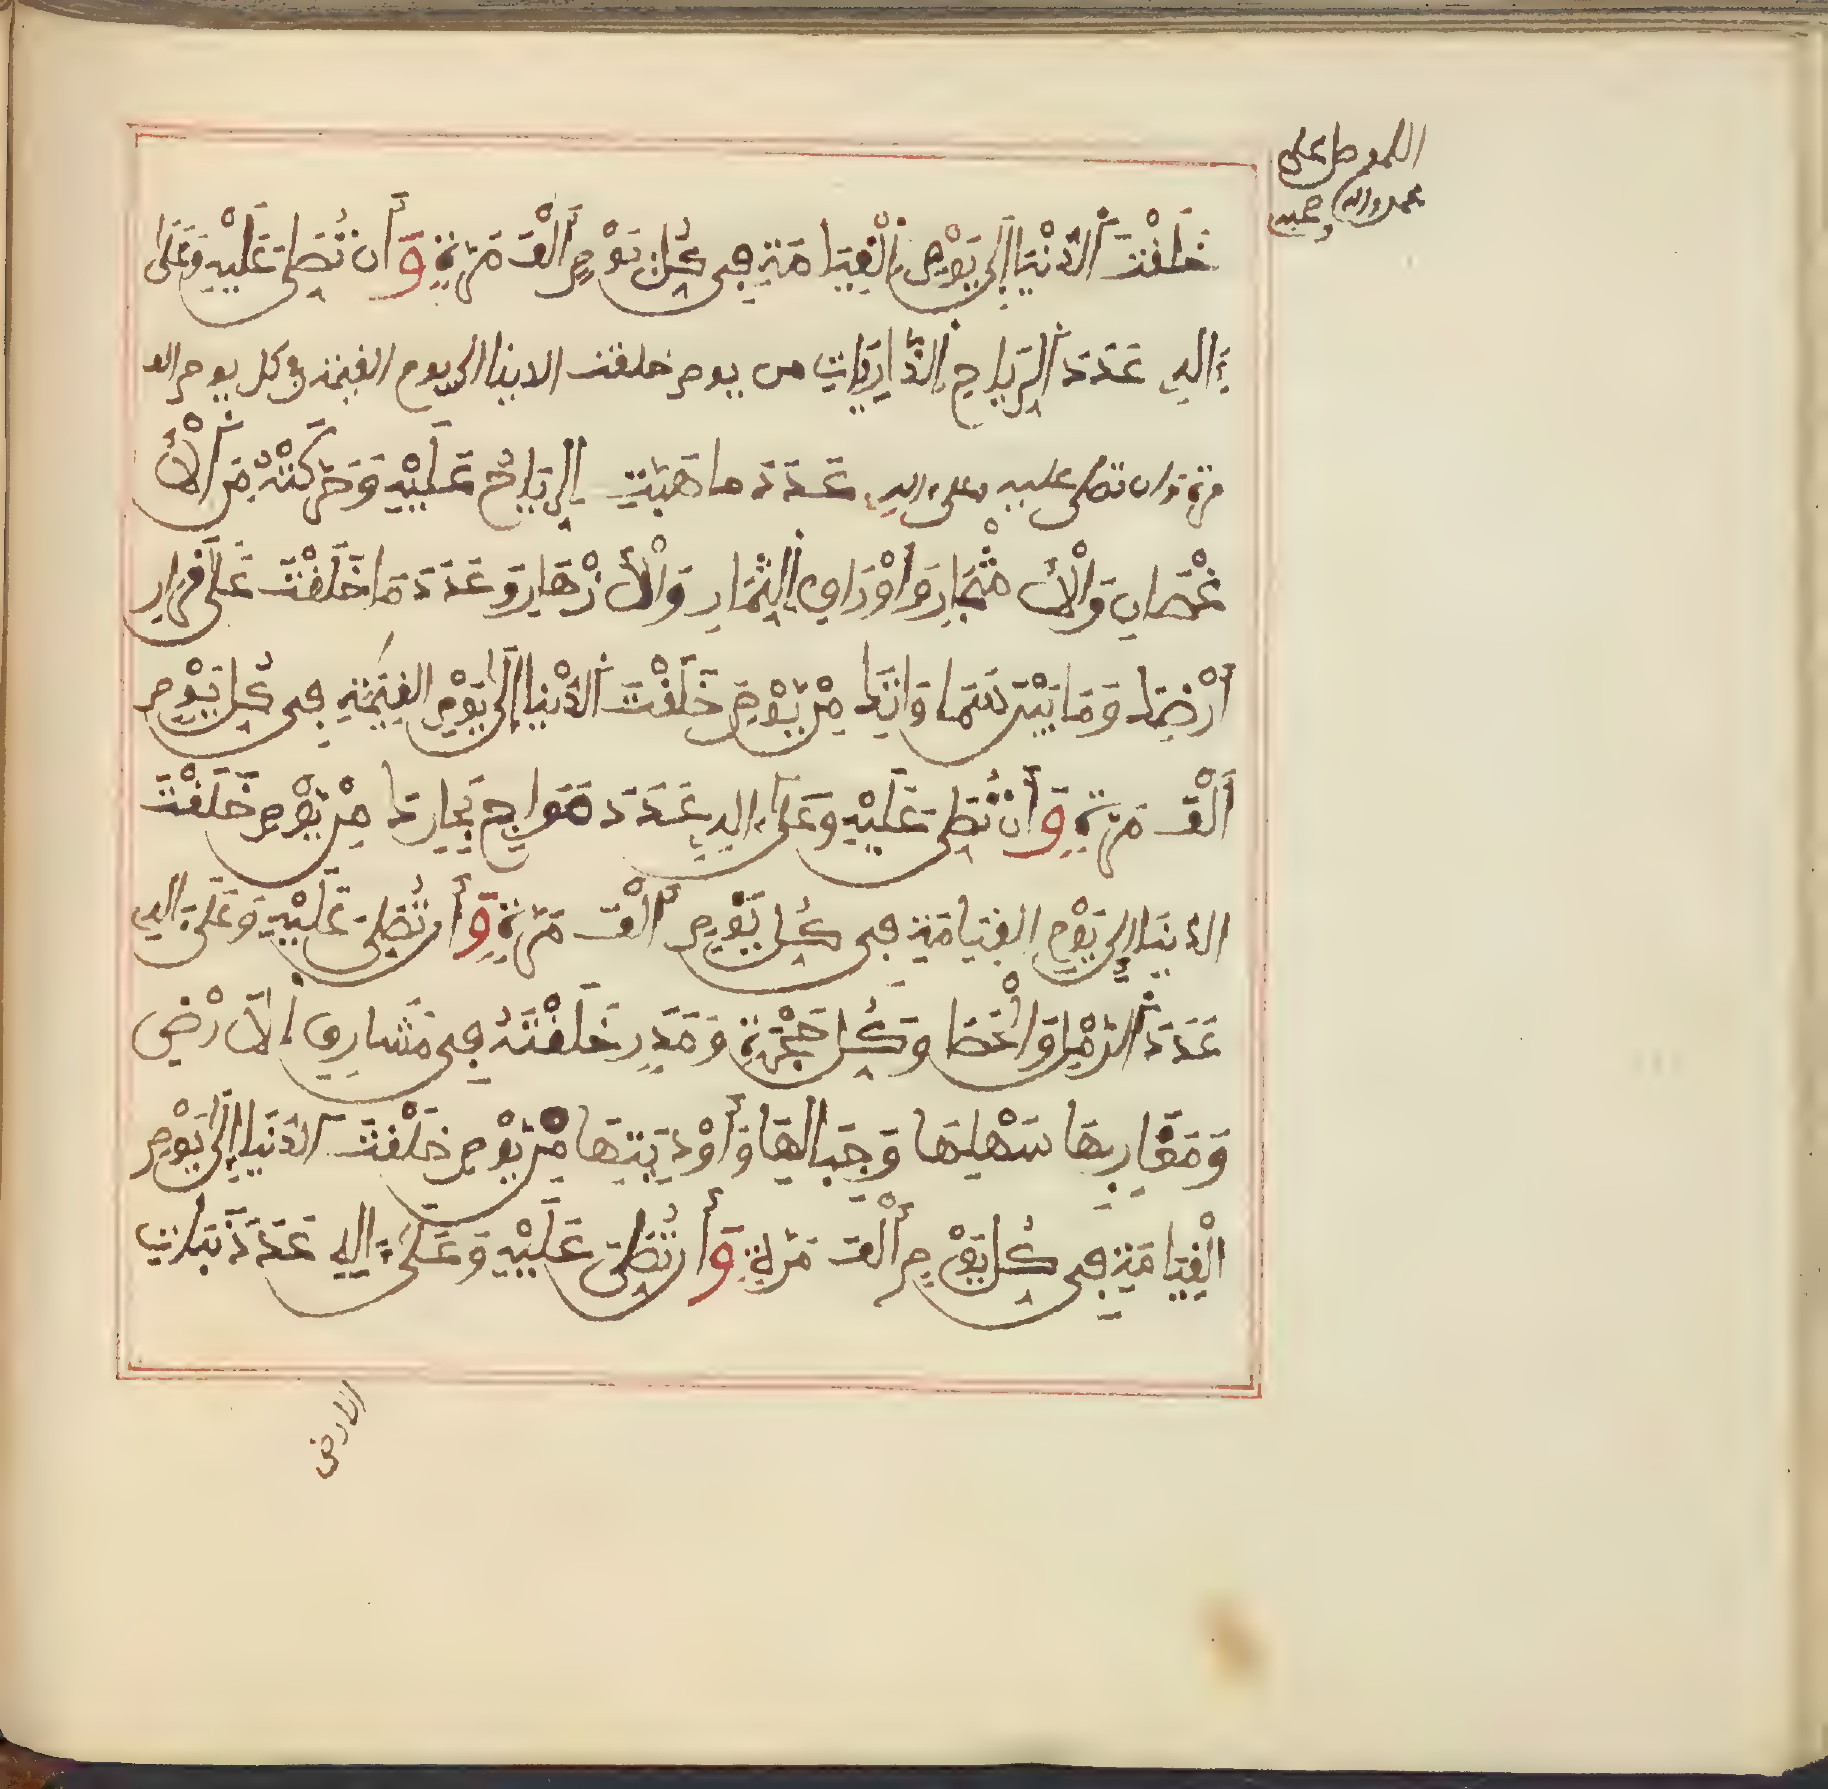 اللهم صل على
محمد واله وصحبه
خَلَقْتَ الدُّنْيَا إِلَى يَوْمِ الْقِيَامَةِ فِي كُلِّ يَوْمٍ أَلْفَ مَرَّةٍ وَأَن تُصَلِّيَ عَلَيْهِ وَعَلَى
ءَالِهِ عَدَدَ الرِّيَاحِ الذَّارِيَاتِ من يوم خلقت الدنيا الى يوم القيمة في كل يوم الف
مرة وان تصلى عليه وعلى ءاله عَدَدَ ما هَبَّتِ الرِّيَاحُ عَلَيْهِ وَحَرَّكَتْهُ مِنَ الْأَ
غْصَانِ وَالْأَشْجَارِ وَأَوْرَاقِ الثِّمَارِ وَالْأَزْهَارِ وَعَدَدَ مَا خَلَقْتَ عَلَى قَرَارِ
أَرْضِكَ وَمَا بَيْنَ سَمَاوَاتِكَ مِنْ يَوْمِ خَلَقْتَ الدُّنْيَا إِلَى يَوْمِ الْقِيَمَةِ فِي كُلِّ يَوْمٍ
أَلْفَ مَرَّةٍ وَأَن تُصَلِّيَ عَلَيْهِ وَعَلَى ءَالِهِ عَدَدَ أَمْوَاجِ بِحَارِكَ مِنْ يَوْمِ خَلَقْتَ
الدُّنْيَا إِلَى يَوْمِ الْقِيَامَةِ فِي كُلِّ يَوْمٍ أَلْفَ مَرَّةٍ وَأَن تُصَلِّيَ عَلَيْهِ وَعَلَى ءَالِهِ
عَدَدَ الرَّمْلِ وَالْحَصَا وَكُلِّ حَجَرَةٍ وَمَدَرٍ خَلَقْتَهُ فِي مَشَارِقِ الْأَرْضِ
وَمَغَارِبِهَا سَهْلِهَا وَجِبَالِهَا وَأَوْدِيَتِهَا مِنْ يَوْمِ خَلَقْتَ الدُّنْيَا إِلَى يَوْمِ
الْقِيَامَةِ فِي كُلِّ يَوْمٍ أَلْفَ مَرَّةٍ وَأَن تُصَلِّيَ عَلَيْهِ وَعَلَى ءَالِهِ عَدَدَ نَبَاتِ
الارض